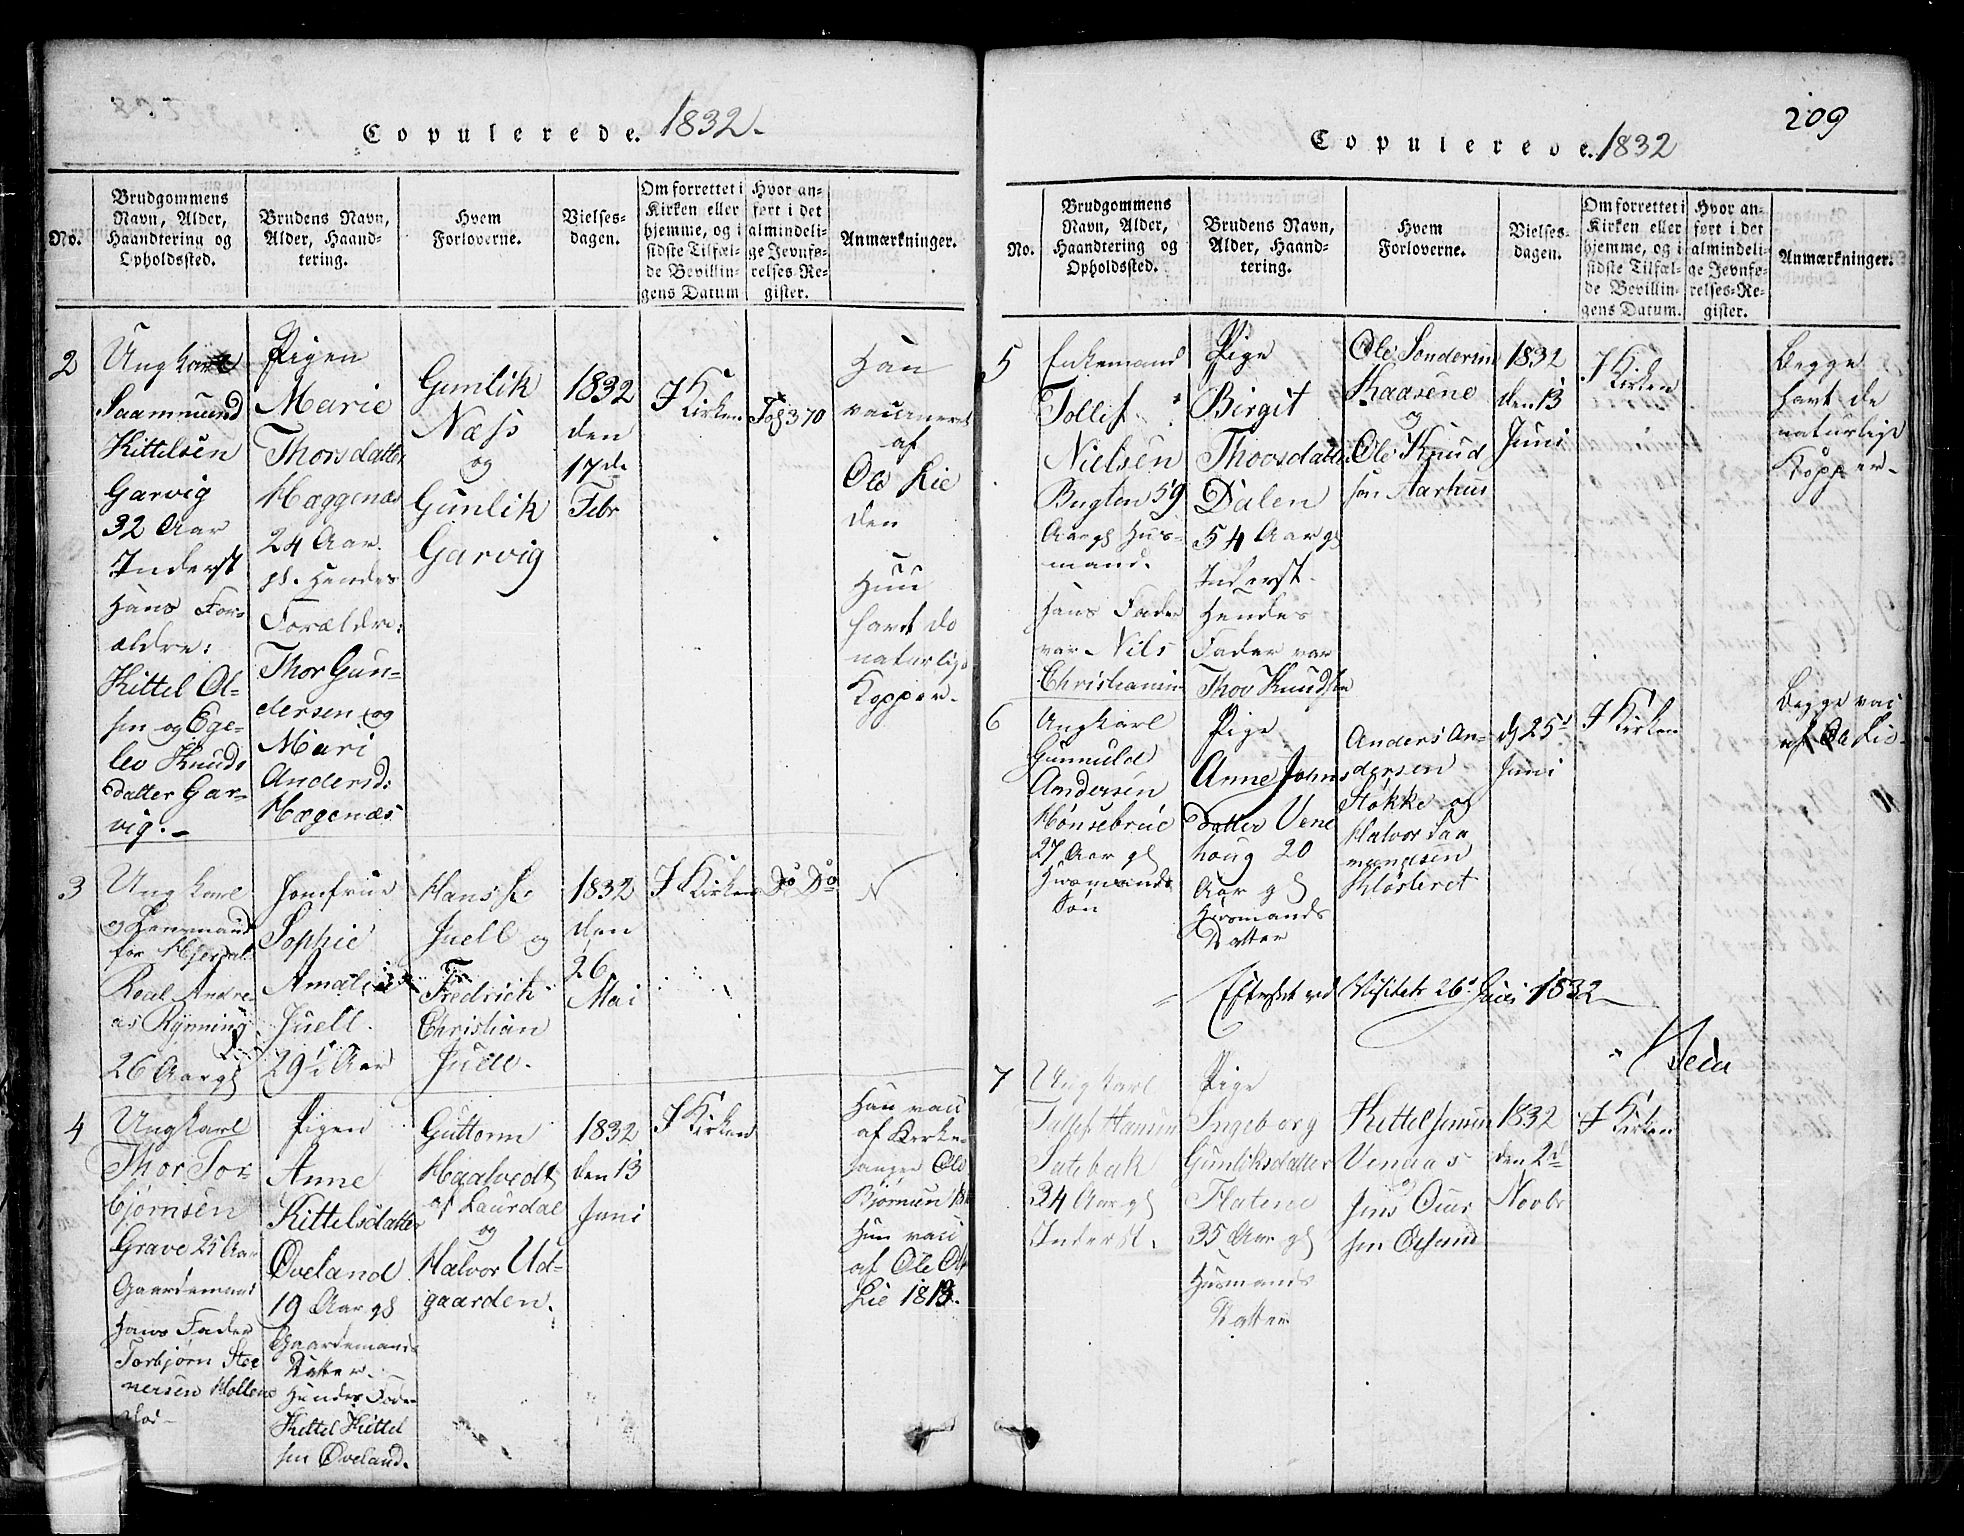 Copulerede. 1832.
No.
Brudgommens
Navn, Alder,
Haandtering og
Opholdssted.
Brudens Navn,
Alder, Haand-
tering.
Hvem
Forloverne.
Vielses-
dagen.
Om forrettet i
Kirken eller
hjemme, og i
sidste Tilfæl-
de Bevillin-
gens Datum
Hvor an-
ført i det
almindeli-
ge Jevnfø-
relses-Re-
gister.
Anmærkninger.
2
Ungkarl
Saamund
Kittelsen
Garvig
32 Aar
Inderst
Hans For-
ældre:
Kittel Ol-
sen og Ege-
lev Knuds
datter Gar-
vig.-
Pigen
Marie
Thorsdatter
Hæggenæs
24 Aar
gl. Hendes
Forældre:
Thor Gun-
dersen og
Mari
Andersd:
Hægenæs
Gunlik
Næss
og
Gunlik
Garvig
1832
den
17de
Febr
I Kirken
Fol 370
Han
vaccineret
af
Ole Lie
den
Hun
havt de
naturlige
Kopper.
3
Ungkarl
og Lensmand
for
Andre-
as Rynning
26 Aar gl
Jomfrue
Sophie
Amalia
Juell.
29 1/2 Aar
Hans
Juell og
Fredrich
Christian
Juell.
1832
den
26
Mai
I Kirken
Do Do
4
Ungkarl
Thor Tor-
bjørnsen
Grave 25 Aar
Gaardemand
Hans Fader
Torbjørn Stee
nersen
Pigen
Anne
Kittelsdatter
Øveland
19 Aar gl
Gaardemands
Datter.
Hendes Fader
Kittel Kittel
sen Øveland.
Guttorm
Haatvedt
af Laurdal
og
Halvor Ud-
gaarden.
1832
den 13
Juni
I Kirken
Han vacc
af Kirke-
sanger Ole
Bjørnsen
Hun vacc
af Ole Ol
Lie 1813.
209
Copulerede. 1832
No.
Brudgommens
Navn, Alder,
Haandtering og
Opholdssted.
Brudens Navn,
Alder, Haand-
tering.
Hvem
Forloverne.
Vielses-
dagen.
Om forrettet i
Kirken eller
hjemme, og i
sidste Tilfæl-
de Bevillin-
gens Datum.
Hvor an-
ført i det
almindeli-
ge Jevnfø-
relses-Re-
gister.
Anmærkninger.
5
Enkemand
Tollef
Nielsen
Bugten 59
Aar gl Hus-
mand.
Hans Fader
var Nils
Pige
Birgit
Thovsdatter
Dalen
54 Aar gl
Inderst.
Hendes
Fader var
Thov Knudsen
Ole
Kaasene
og
Ole Knud
sen Aarhus
1832
den 13
Juni
I Kirken
Begge
havt de
naturlige
Kopper.
6
Ungkarl
Gunnuld
Andersen
Hønsebrue
27 Aar gl
Husmands
Søn
Pige
Anne Johns
datter Vene
houg 20
Aar gl
Husmands
Datter
Anders An-
dersen
Stokke og
Halvor Saa
mundsen
Klosteret
d 25
Juni
I Kirken
Begge vac
af Ole Lie.
Efterseet ved Visitats 26 Juni 1832
7
Ungkarl
Tollef Hansen
34 Aar gl
Inderst.
Pige
Ingeborg
Gunliksdatter
Flatene
35 Aar gl
Husmands
Datter
Kittel Jensen
Venaas
og
Jens
1832
den 2d
Novbr
I Kirken